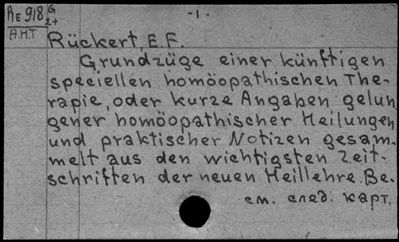 АЕ 918 G
2+
А.Н.Т
- 1 -
Rückert, E. F.
Grundzüge einer künftigen
speciellen homöopathischen The-
rapie, oder kurze Angaben gelun
gener homöopathischer Heilungen
und praktischer Notizen gesam.
melt aus den wichtigsten Zeit-
schriften der neuen Heillehre. Be.
см. след. карт.